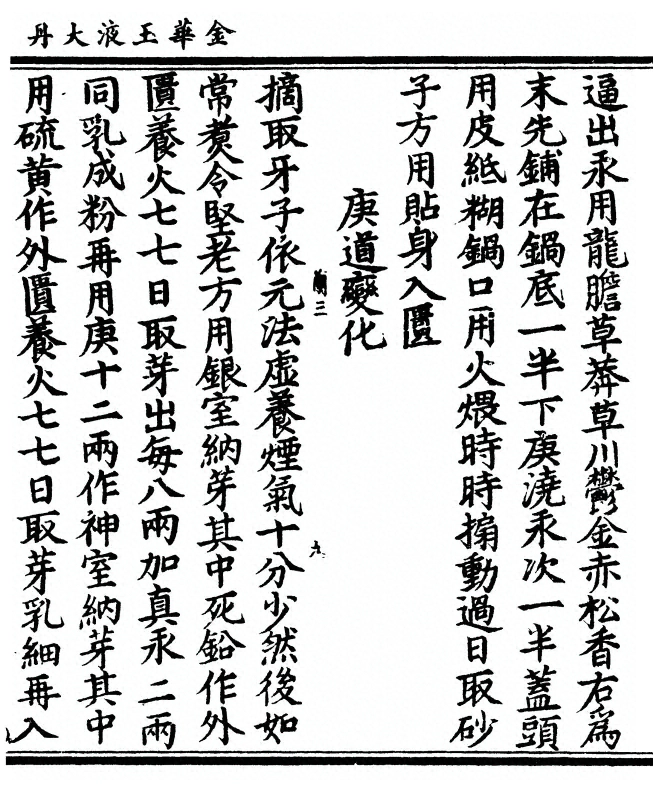 金華玉液大丹
逼出汞用龍膽草莽草川鬱金赤松香右爲
末先鋪在鍋底一半下庚澆汞次一半蓋頭
用皮紙糊鍋口用火煨時時搧動過日取砂
子方用貼身入匱
庚道變化
蘭三
九
摘取牙子依元法虛養煙氣十分少然後如
常煑令堅老方用銀室納芽其中死鉛作外
匱養火七七日取芽出每八兩加真汞二兩
同乳成粉再用庚十二兩作神室納芽其中
用硫黄作外匱養火七七日取芽乳細再入